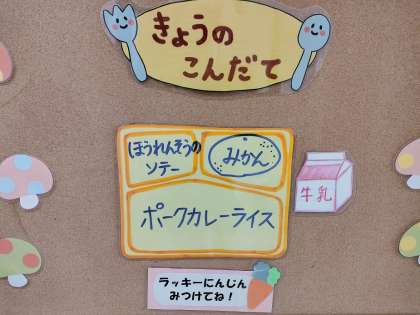 きょうの
こんだて
ほうれんそうの
ソテー
みかん
牛乳
ポークカレーライス
ラッキーにんじん
みつけてね!